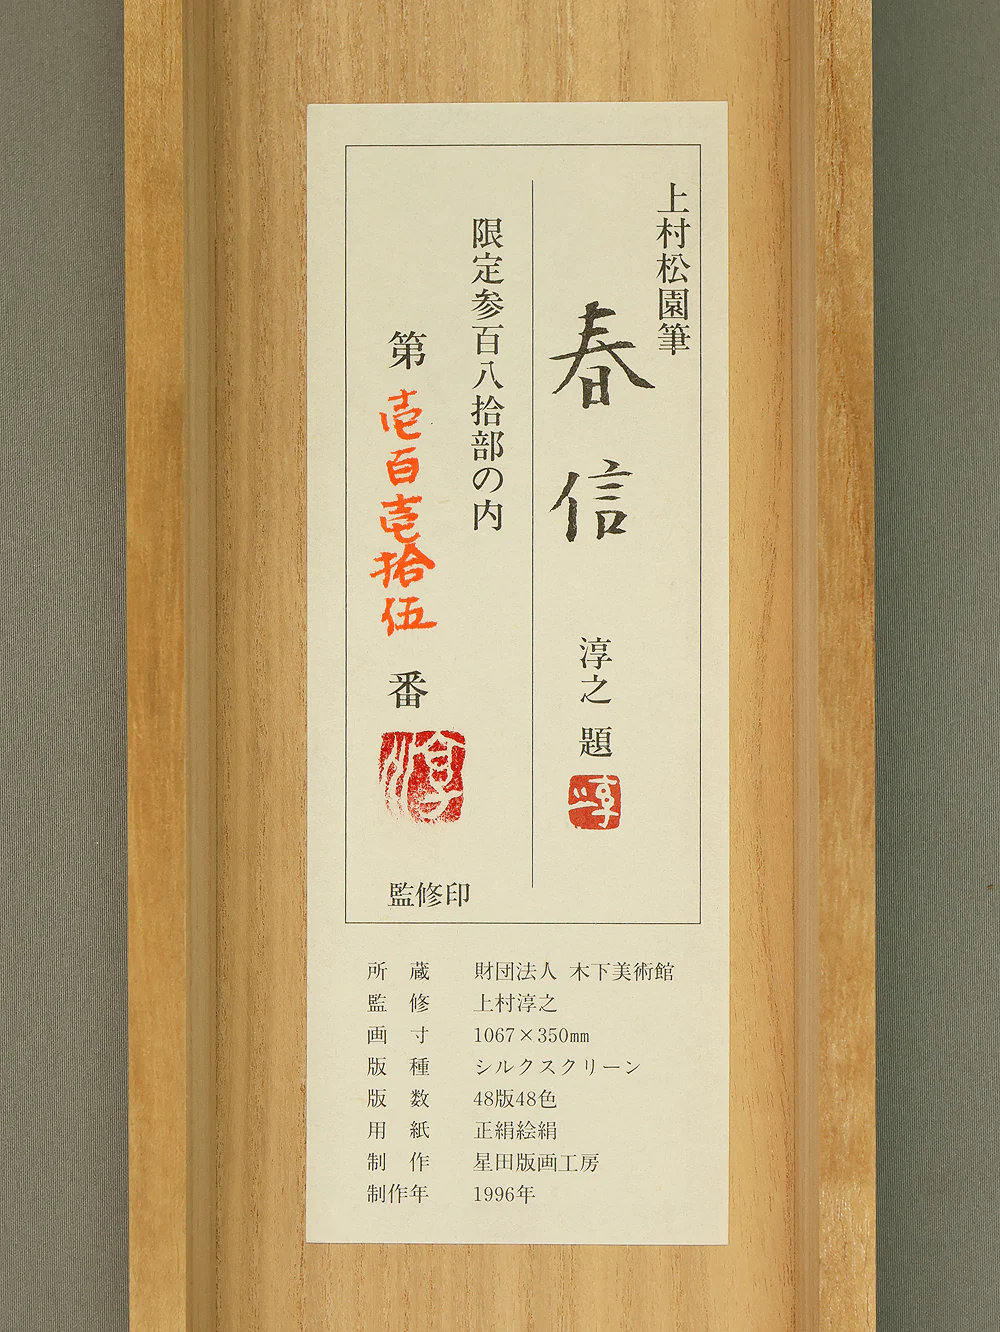 上村松園筆
春信
淳之 題
淳
限定参百八拾部の内
第 壱百壱拾伍 番
淳
監修印
所蔵 財団法人 木下美術館
監修 上村淳之
画寸 1067×350㎜
版種 シルクスクリーン
版数 48版48色
用紙 正絹絵絹
制作 星田版画工房
制作年 1996年